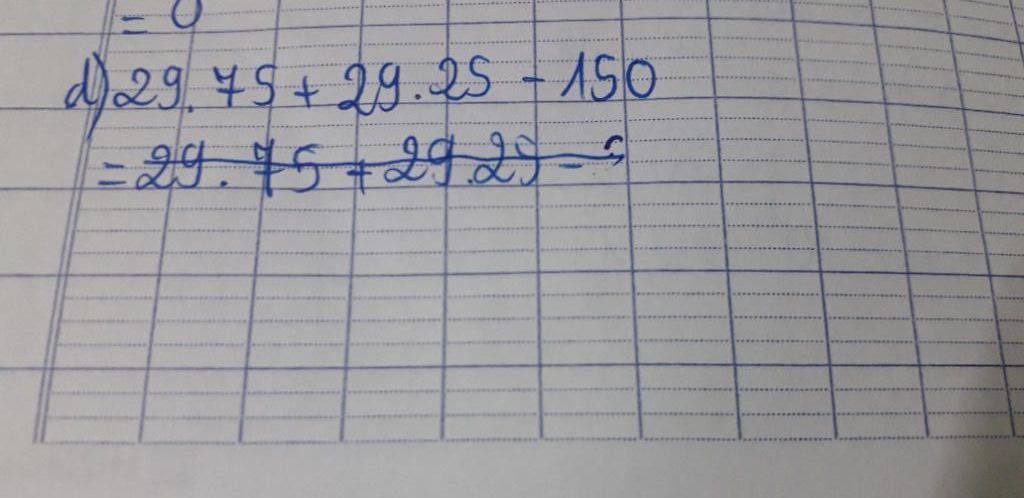 = 0
d) 29.75 + 29.25 - 150
= 29.75 + 29.29 -